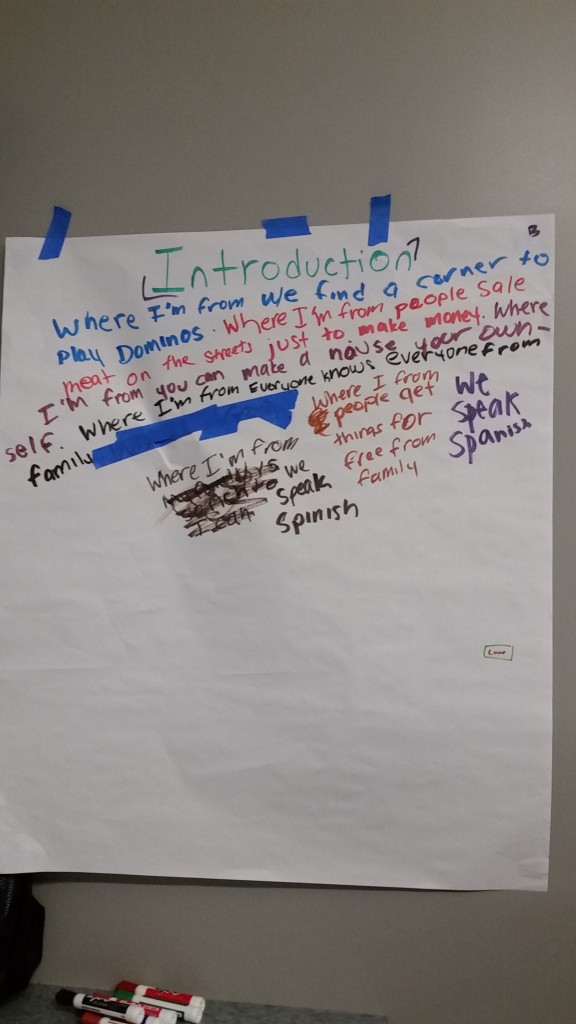 B
Introduction
Where I'm from we find a corner to
Play Dominos. Where I'm from people sale
meat on the streets just to make money. Where
I'm from you can make a naise your own-
self. Where I'm from Everyone knows everyone from
family
Where I'm from
we
speak
Spinish
Where I from
people get
things for
free from
family
We
Speak
Spanish